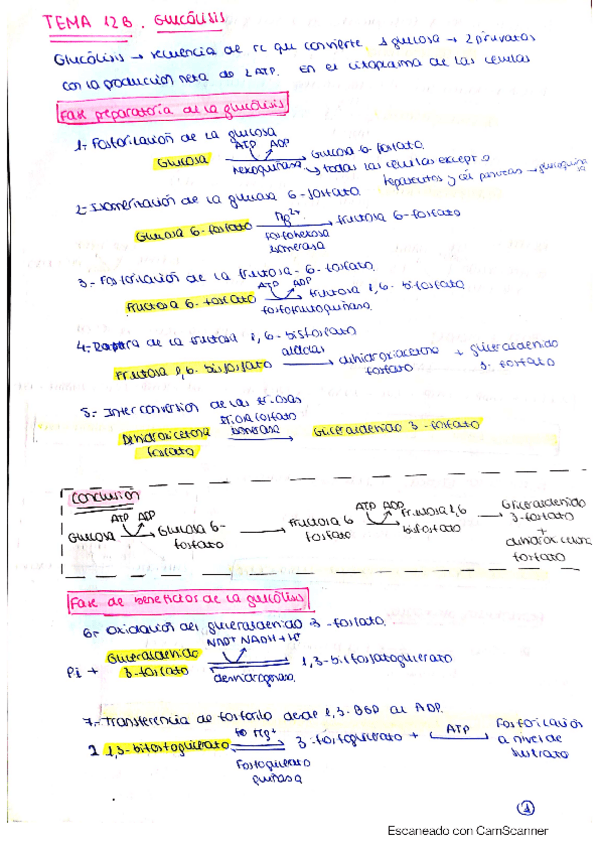 TEMA 12B. GLUCÓLISIS
Glucólisis → secuencia de rc que convierte 1 glucosa → 2 piruvatos
con la producción neta de 2 ATP. En el citoplasma de las células
Fase preparatoria de la glucólisis
1.- Fosforilación de la glucosa
ATP ADP
Glucosa → Glucosa 6-fosfato
hexoquinasa → todas las células excepto
hepatocitos y cél
2.- Isomerización de la glucosa 6-fosfato
Glucosa 6-fosfato Mg2+ → fructosa 6-fosfato
fosfohexosa
isomerasa
3.- Fosforilación de la fructosa-6-fosfato
ATP ADP
Fructosa 6-fosfato → fructosa 1,6-bifosfato
fosfofructoquinasa
4.- Rotura de la fructosa 1,6-bisfosfato
Fructosa 1,6-bisfosfato → dihidroxiacetona + gliceraldehido
fosfato 3-fosfato
5.- Interconversión de las triosas
triosa fosfato
Dihidroxicetona isomerasa → Gliceraldehido 3-fosfato
fosfato
Conclusión
ATP ADP ATP ADP
Glucosa → Glucosa 6-fosfato → fructosa 6 fosfato → Fructosa 1,6 bisfosfato → Gliceraldehido
3-fosfato
+
dihidroxicetona
fosfato
Fase de beneficios de la glucólisis
6.- Oxidación del gliceraldehido 3-fosfato
NAD+ NADH + H+
Gliceraldehido
Pi + 3-fosfato 1,3-bifosfoglicerato
deshidrogenasa
7.- Transferencia de fosforilo desde 1,3-BGP al ADP.
2 1,3-bifosfoglicerato Mg+ 3-fosfoglicerato + ATP Fosforilación
a nivel de
sustrato
Fosfoglicerato
quinasa
1
Escaneado con CamScanner